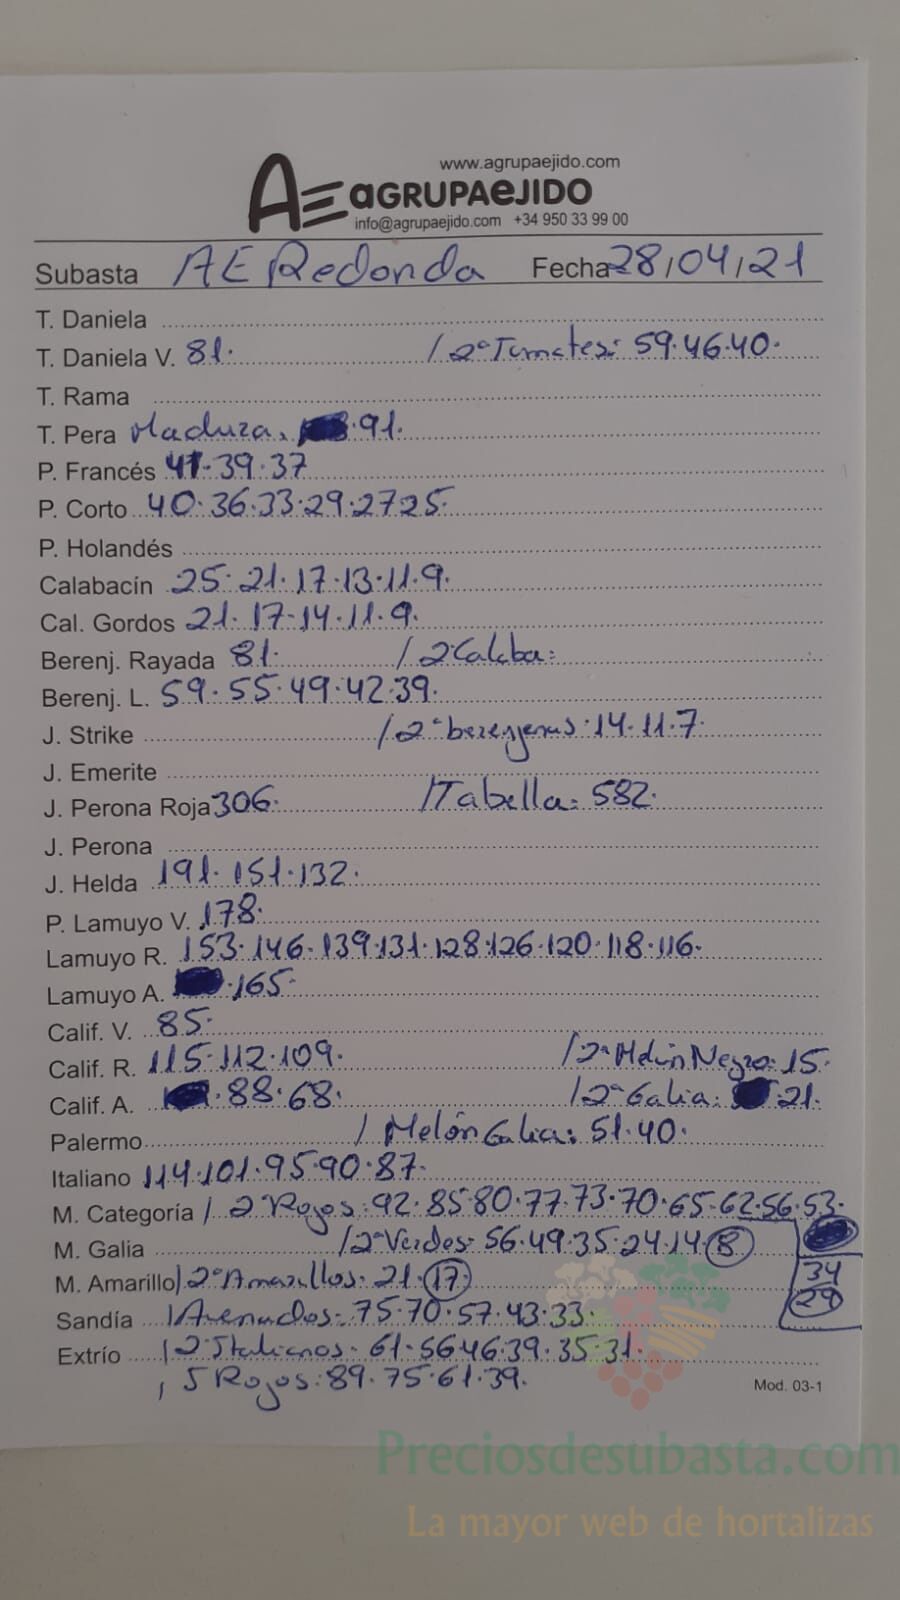 www.agrupaejido.com
AE aGRUPAeJIDO
info@agrupaejido.com +34 950 33 99 00
Subasta AE Redonda Fecha 28/04/21
T. Daniela
T. Daniela V. 81. / 2ª Tomates: 59.46.40.
T. Rama
T. Pera Madura. .91.
P. Francés 41.39.37
P. Corto 40.36.33.29.27 25.
P. Holandés
Calabacín 25.21.17.13.11.9.
Cal. Gordos 21.17.14.11.9.
Berenj. Rayada 81. / 2 Calaba:
Berenj. L. 59.55.49.42.39.
J. Strike / 2ª berenjenas: 14.11.7.
J. Emerite
J. Perona Roja 306. / Tabella: 582.
J. Perona
J. Helda 191.151.132.
P. Lamuyo V. 178.
Lamuyo R. 153.146.139.131.128.126.120.118.116.
Lamuyo A. .165.
Calif. V. 85.
Calif. R. 115.112.109. / 2ª Melón Negro: 15.
Calif. A. .88.68. / 2ª Galia: .21.
Palermo / Melón Galia: 51.40.
Italiano 114.101.95.90.87.
M. Categoría / 2ª Rojos: 92.85.80.77.73.70.65.62.56.53.
M. Galia / 2ª Verdes: 56.49.35.24.14.8
M. Amarillo / 2ª Amarillos: 21.17. 34
Sandía / Asenados: 75.70.57.43.33. 29
Extrío / 2 Italianos. 61.56 46.39.35.31.
, 5 Rojos: 89.75.61.39.
Mod. 03-1
Preciosdesubasta.com
La mayor web de hortalizas